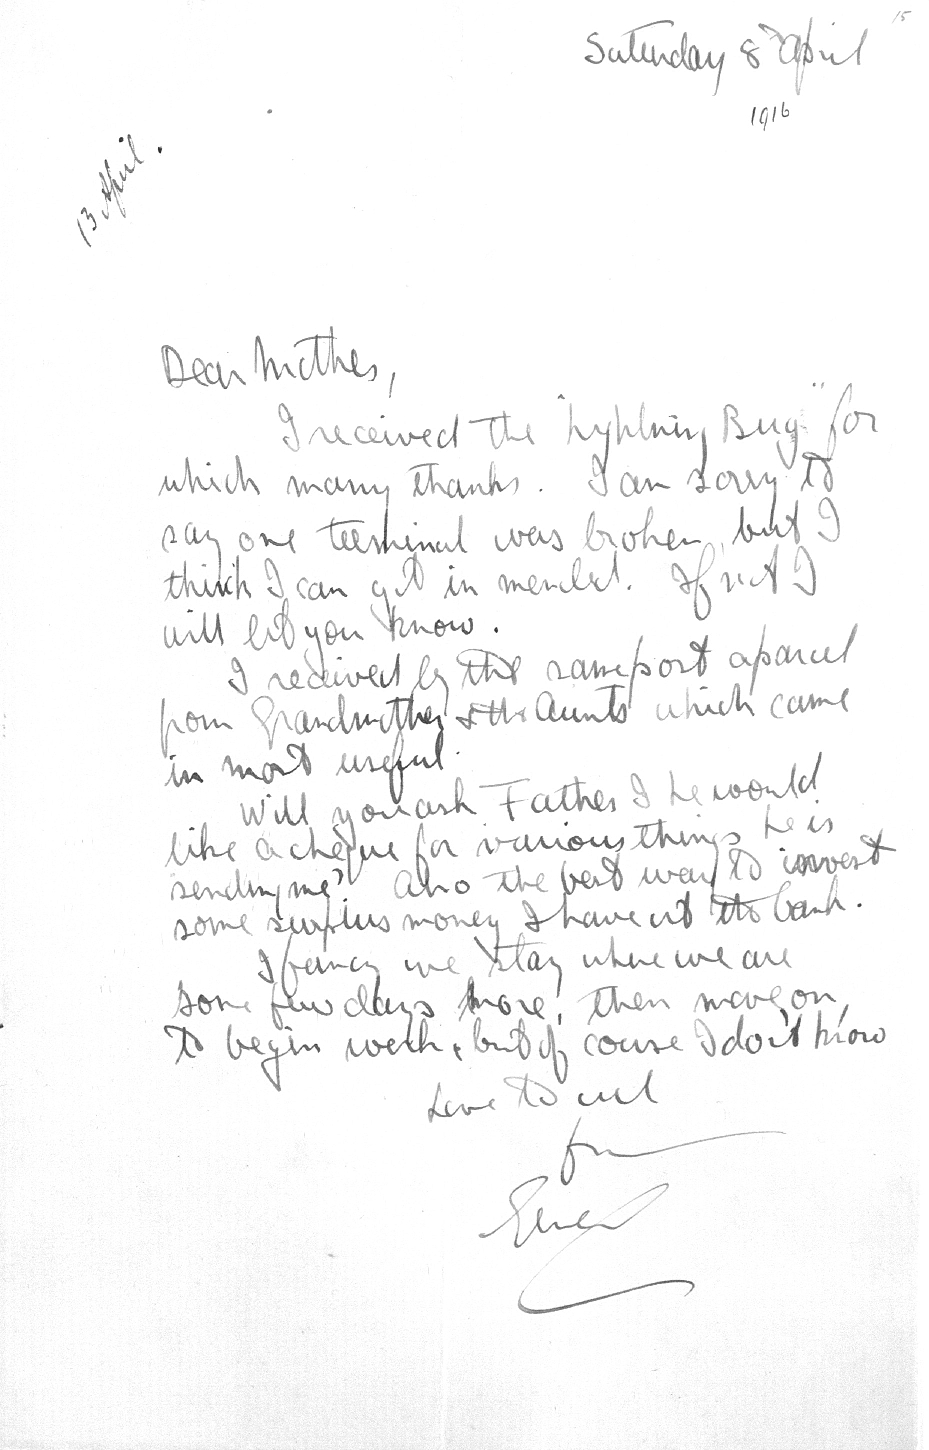 15
Saturday 8 April
1916
13 April.
Dear Mother,
I received the "Lightning Bug" for
which many thanks. I am sorry to
say one terminal was broken, but I
think I can get it mended. If not I
will let you know.
I received by the same post a parcel
from Grandmother & the Aunts which came
in most useful.
Will you ask Father I he would
like a cheque for various things he is
sending me? Also the best way to invest
some surplus money I have at the bank.
I fancy we stay where we are
some few days more, then move on
to begin work, but of course I don't know
Love to all
from